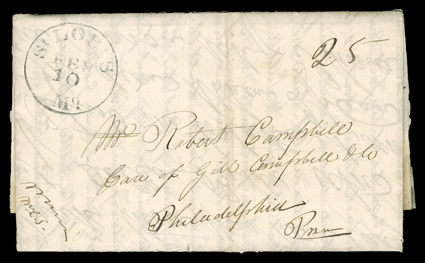 St LOUIS
FEB
10
Mo.
25
Mr Robert Campbell
Care of Gill Campbell & Co
Philadelphia
Penn